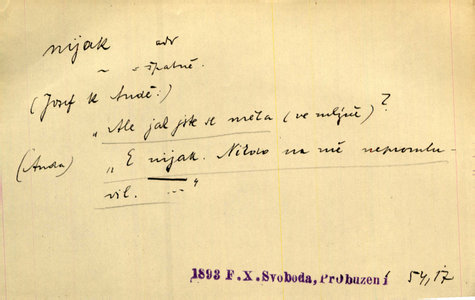 nijak adv
~ = špatně.
(Josef k Andě:)
„Ale jak jste se měla (ve mlýně)?
(Anda) „E nijak. Nikdo na mě nepromlu-
vil. — "
1893 F.X.Svoboda, Probuzení 54,17